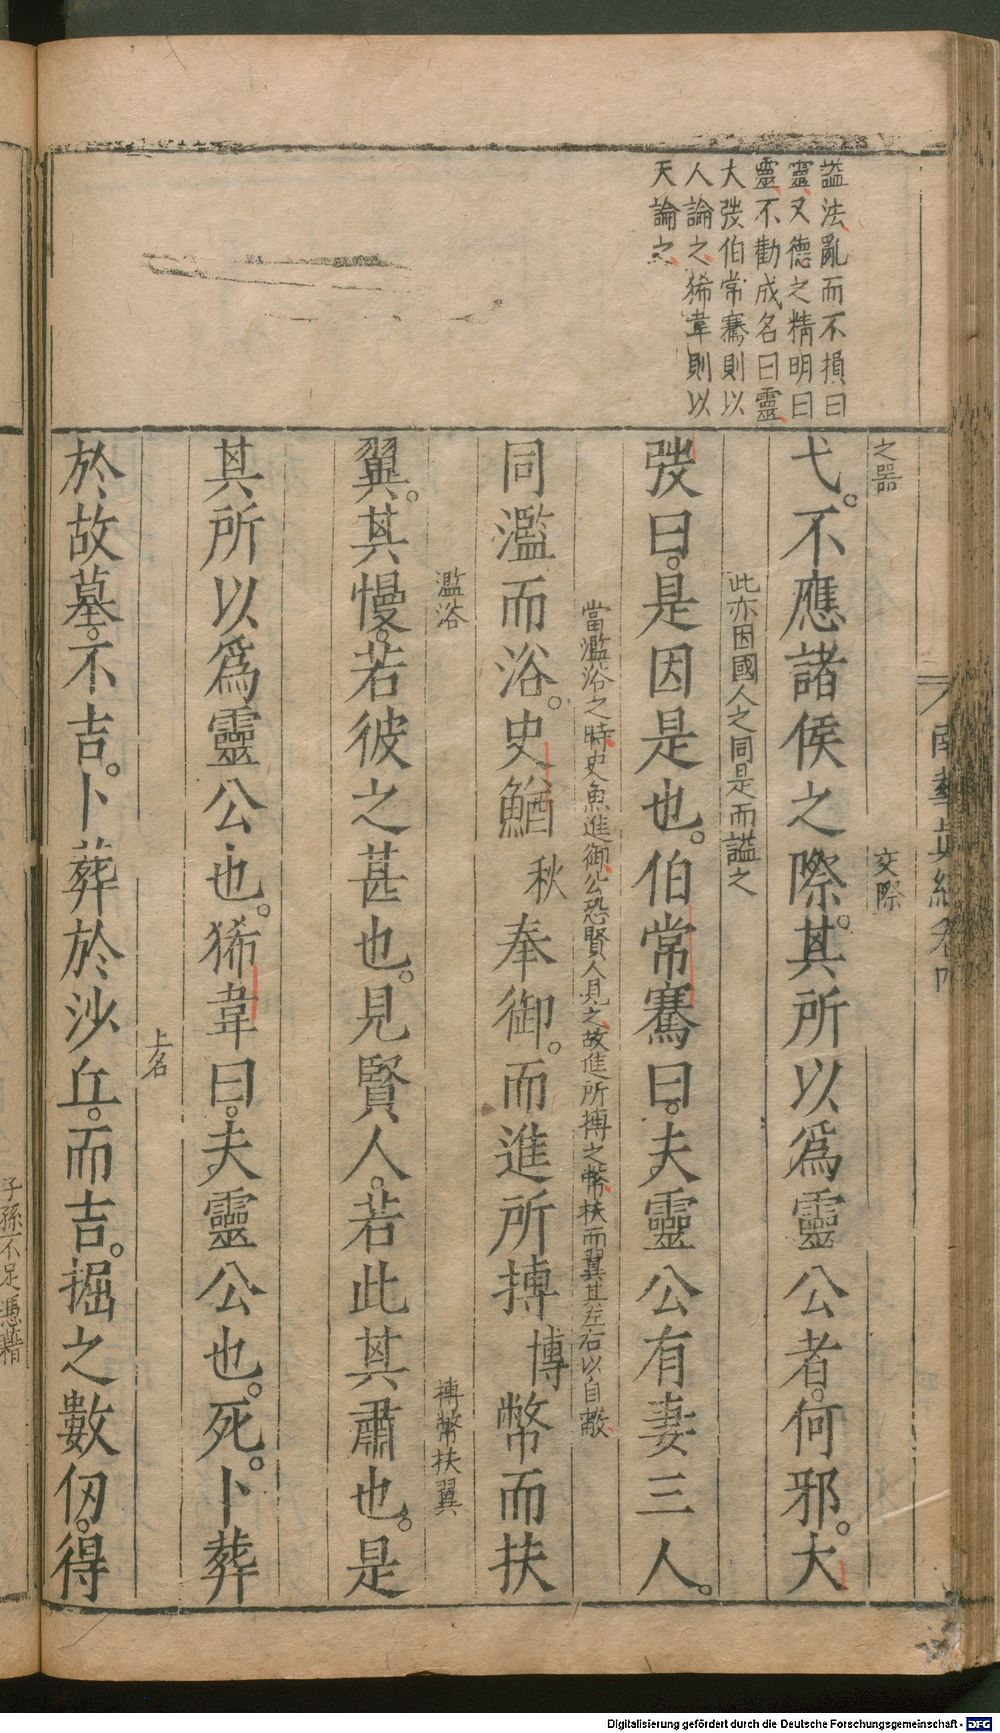 謚法亂而不損曰
靈又德之精明曰
靈不勤成名曰靈
大弢伯常騫則以
人論之狶韋則以
天論之
之器
交際
弋。不應諸侯之際。其所以爲靈公者。何邪。大
此亦因國人之同是而謚之
弢曰。是因是也。伯常騫曰。夫靈公有妻三人。
當濫浴之時史魚進御公恐賢人見之故進所搏之幣扶而翼其左右以自蔽
同濫而浴。史鰌秋奉御。而進所搏博幣而扶
濫浴
搏幣扶翼
翼。其慢。若彼之甚也。見賢人。若此其肅也。是
其所以爲靈公也。狶韋曰。夫靈公也。死。卜葬
上名
於故墓。不吉。卜葬於沙丘。而吉。掘之數仞。得
子孫不足憑藉
南華真經卷
Digitalisierung gefördert durch die Deutsche Forschungsgemeinschaft - DFG